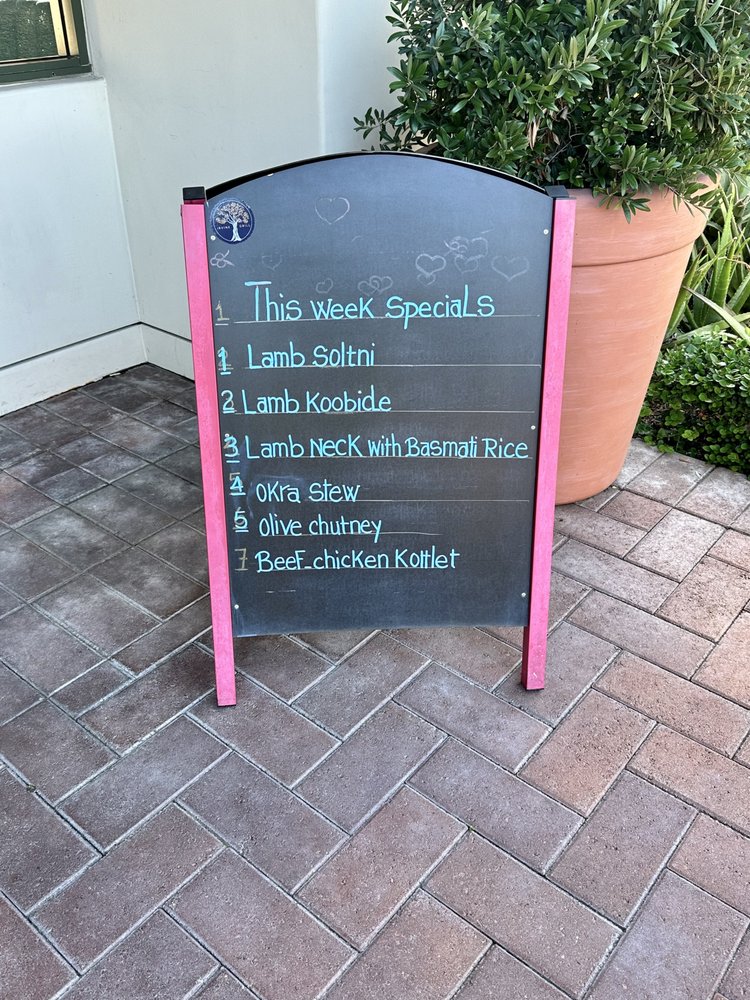 This week specials
1 Lamb Soltni
2 Lamb Koobide
3 Lamb Neck with Basmati Rice
4 okra stew
5 olive chutney
7 Beef-chicken Kottlet